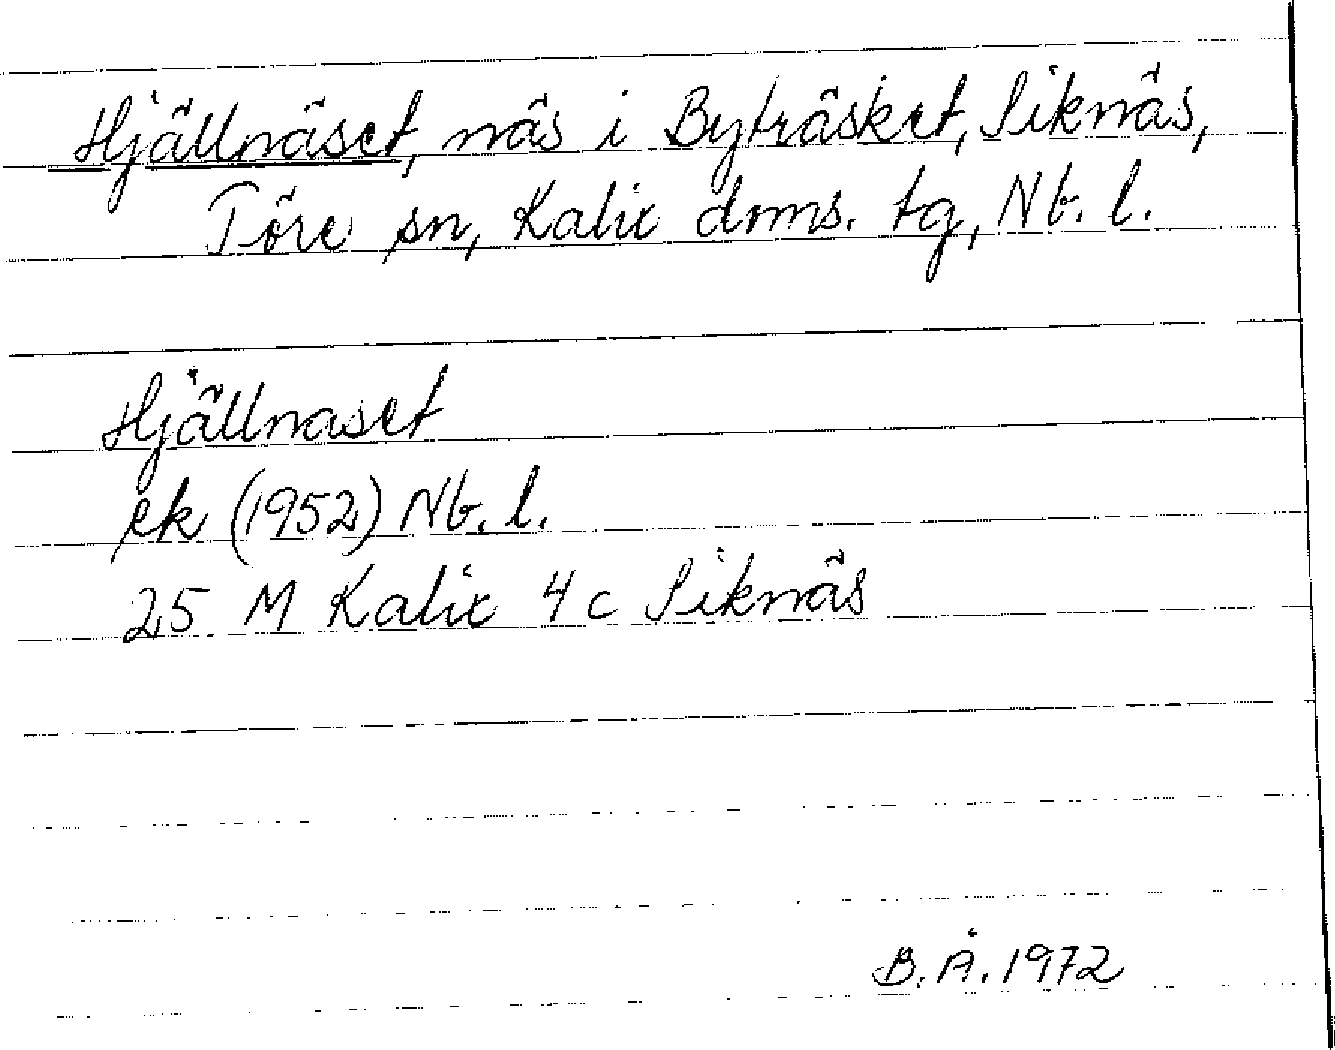 Hjällnäset, näs i Byträsket, Siknäs,
Töre sn, Kalix dms. tg, Nb. l.
Hjällnaset
ek (1952) Nb. l.
25 M Kalix 4 c Siknäs
B. Å. 1972